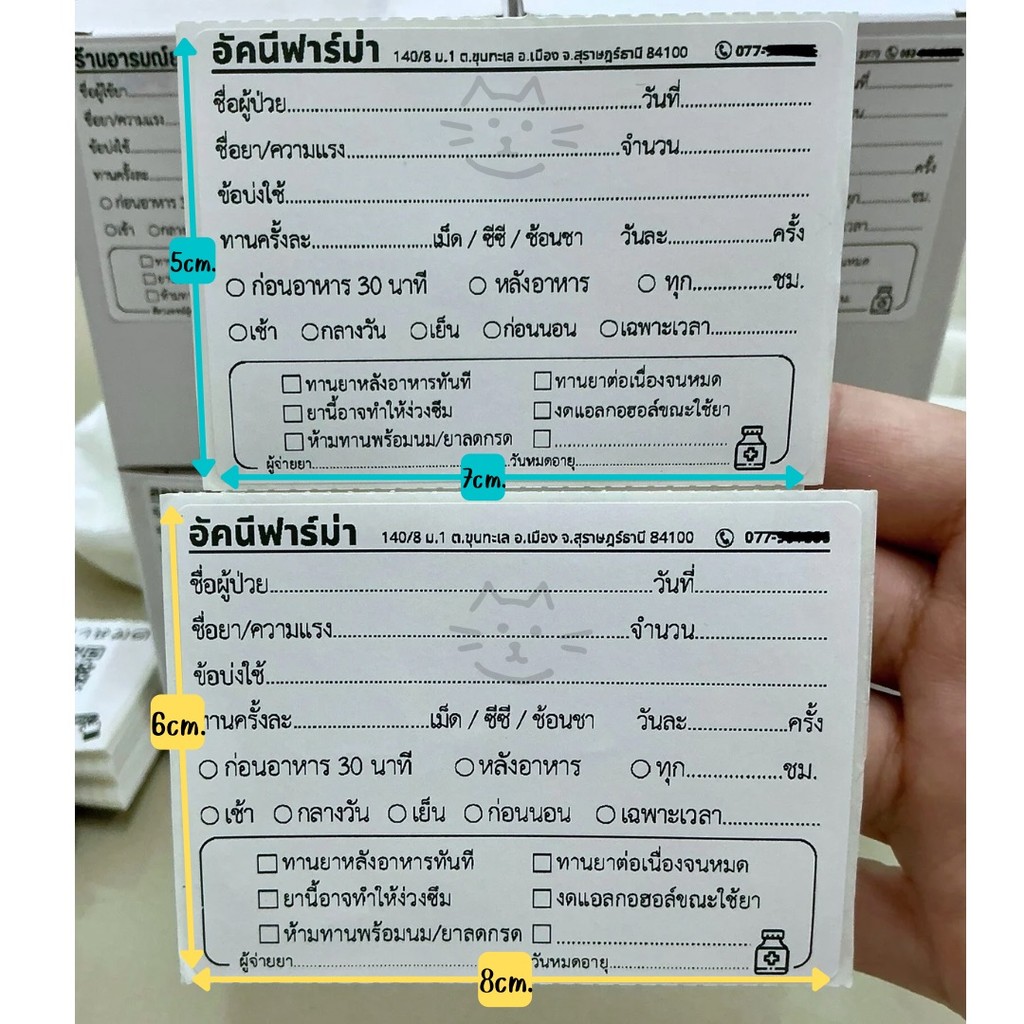 อัคนีฟาร์ม่า 140/8 ม.1 ต.ขุนทะเล อ.เมือง จ.สุราษฎร์ธานี 84100 077-
ชื่อผู้ป่วย วันที่
ชื่อยา/ความแรง จำนวน
ข้อบ่งใช้
ทานครั้งละ เม็ด / ซีซี / ช้อนชา วันละ ครั้ง
ก่อนอาหาร 30 นาที หลังอาหาร ทุก ชม.
เช้า กลางวัน เย็น ก่อนนอน เฉพาะเวลา
ทานยาหลังอาหารทันที ทานยาต่อเนื่องจนหมด
ยานี้อาจทำให้ง่วงซึม งดแอลกอฮอล์ขณะใช้ยา
ห้ามทานพร้อมนม/ยาลดกรด
ผู้จ่ายยา วันหมดอายุ
5cm.
7cm.
อัคนีฟาร์ม่า 140/8 ม.1 ต.ขุนทะเล อ.เมือง จ.สุราษฎร์ธานี 84100 077-
ชื่อผู้ป่วย วันที่
ชื่อยา/ความแรง จำนวน
ข้อบ่งใช้
ทานครั้งละ เม็ด / ซีซี / ช้อนชา วันละ ครั้ง
ก่อนอาหาร 30 นาที หลังอาหาร ทุก ชม.
เช้า กลางวัน เย็น ก่อนนอน เฉพาะเวลา
ทานยาหลังอาหารทันที ทานยาต่อเนื่องจนหมด
ยานี้อาจทำให้ง่วงซึม งดแอลกอฮอล์ขณะใช้ยา
ห้ามทานพร้อมนม/ยาลดกรด
ผู้จ่ายยา วันหมดอายุ
6cm.
8cm.
ชื่อผู้ใช้ยา
ชื่อยา/ความแรง
ข้อบ่งใช้
ทานครั้งละ ครั้ง
ก่อนอาหาร ชม.
เช้า